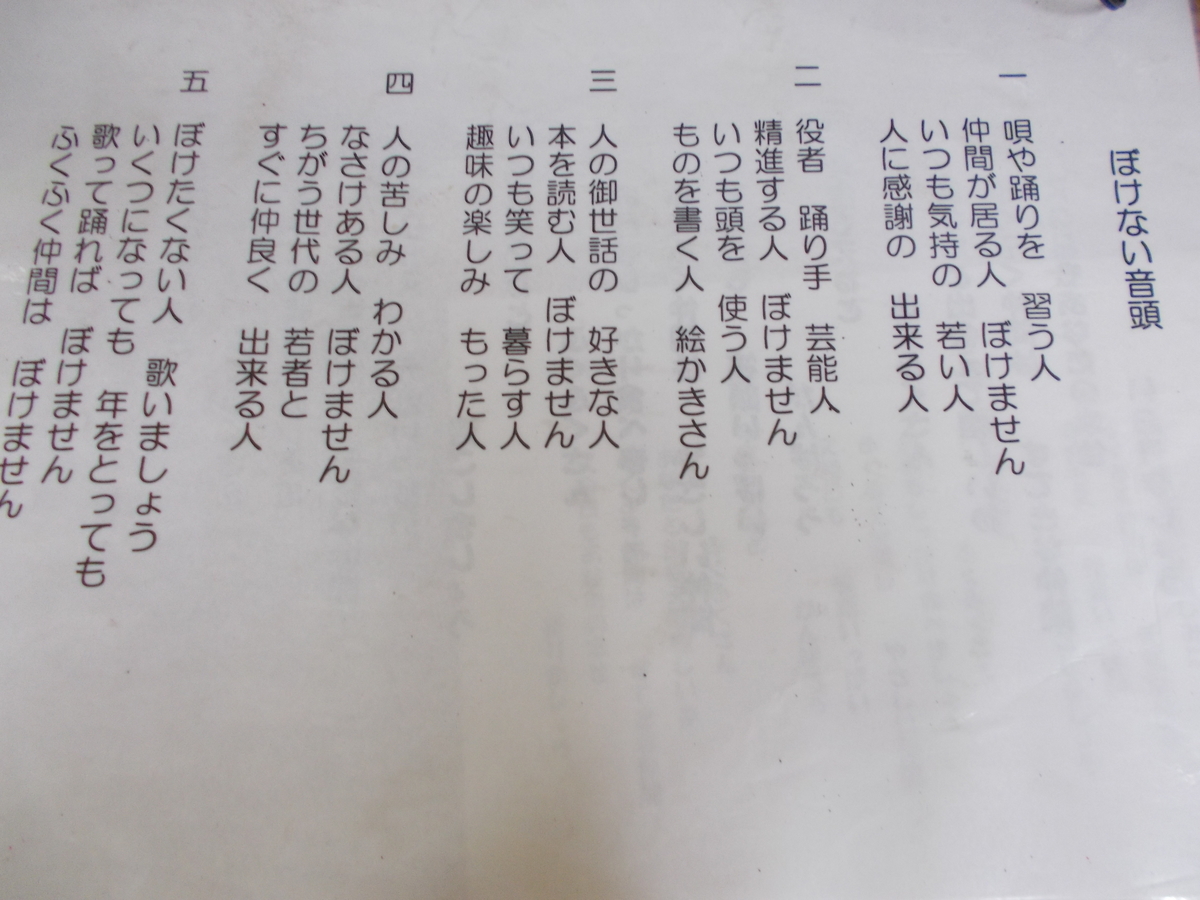 ぼけない音頭
一
唄や踊りを　習う人
仲間が居る人　ぼけません
いつも気持の　若い人
人に感謝の　出来る人
二
役者　踊り手　芸能人
精進する人　ぼけません
いつも頭を　使う人
ものを書く人　絵かきさん
三
人の御世話の　好きな人
本を読む人　ぼけません
いつも笑って　暮らす人
趣味の楽しみ　もった人
四
人の苦しみ　わかる人
なさけある人　ぼけません
ちがう世代の　若者と
すぐに仲良く　出来る人
五
ぼけたくない人　歌いましょう
いくつになっても　年をとっても
歌って踊れば　ぼけません
ふくふく仲間は　ぼけません